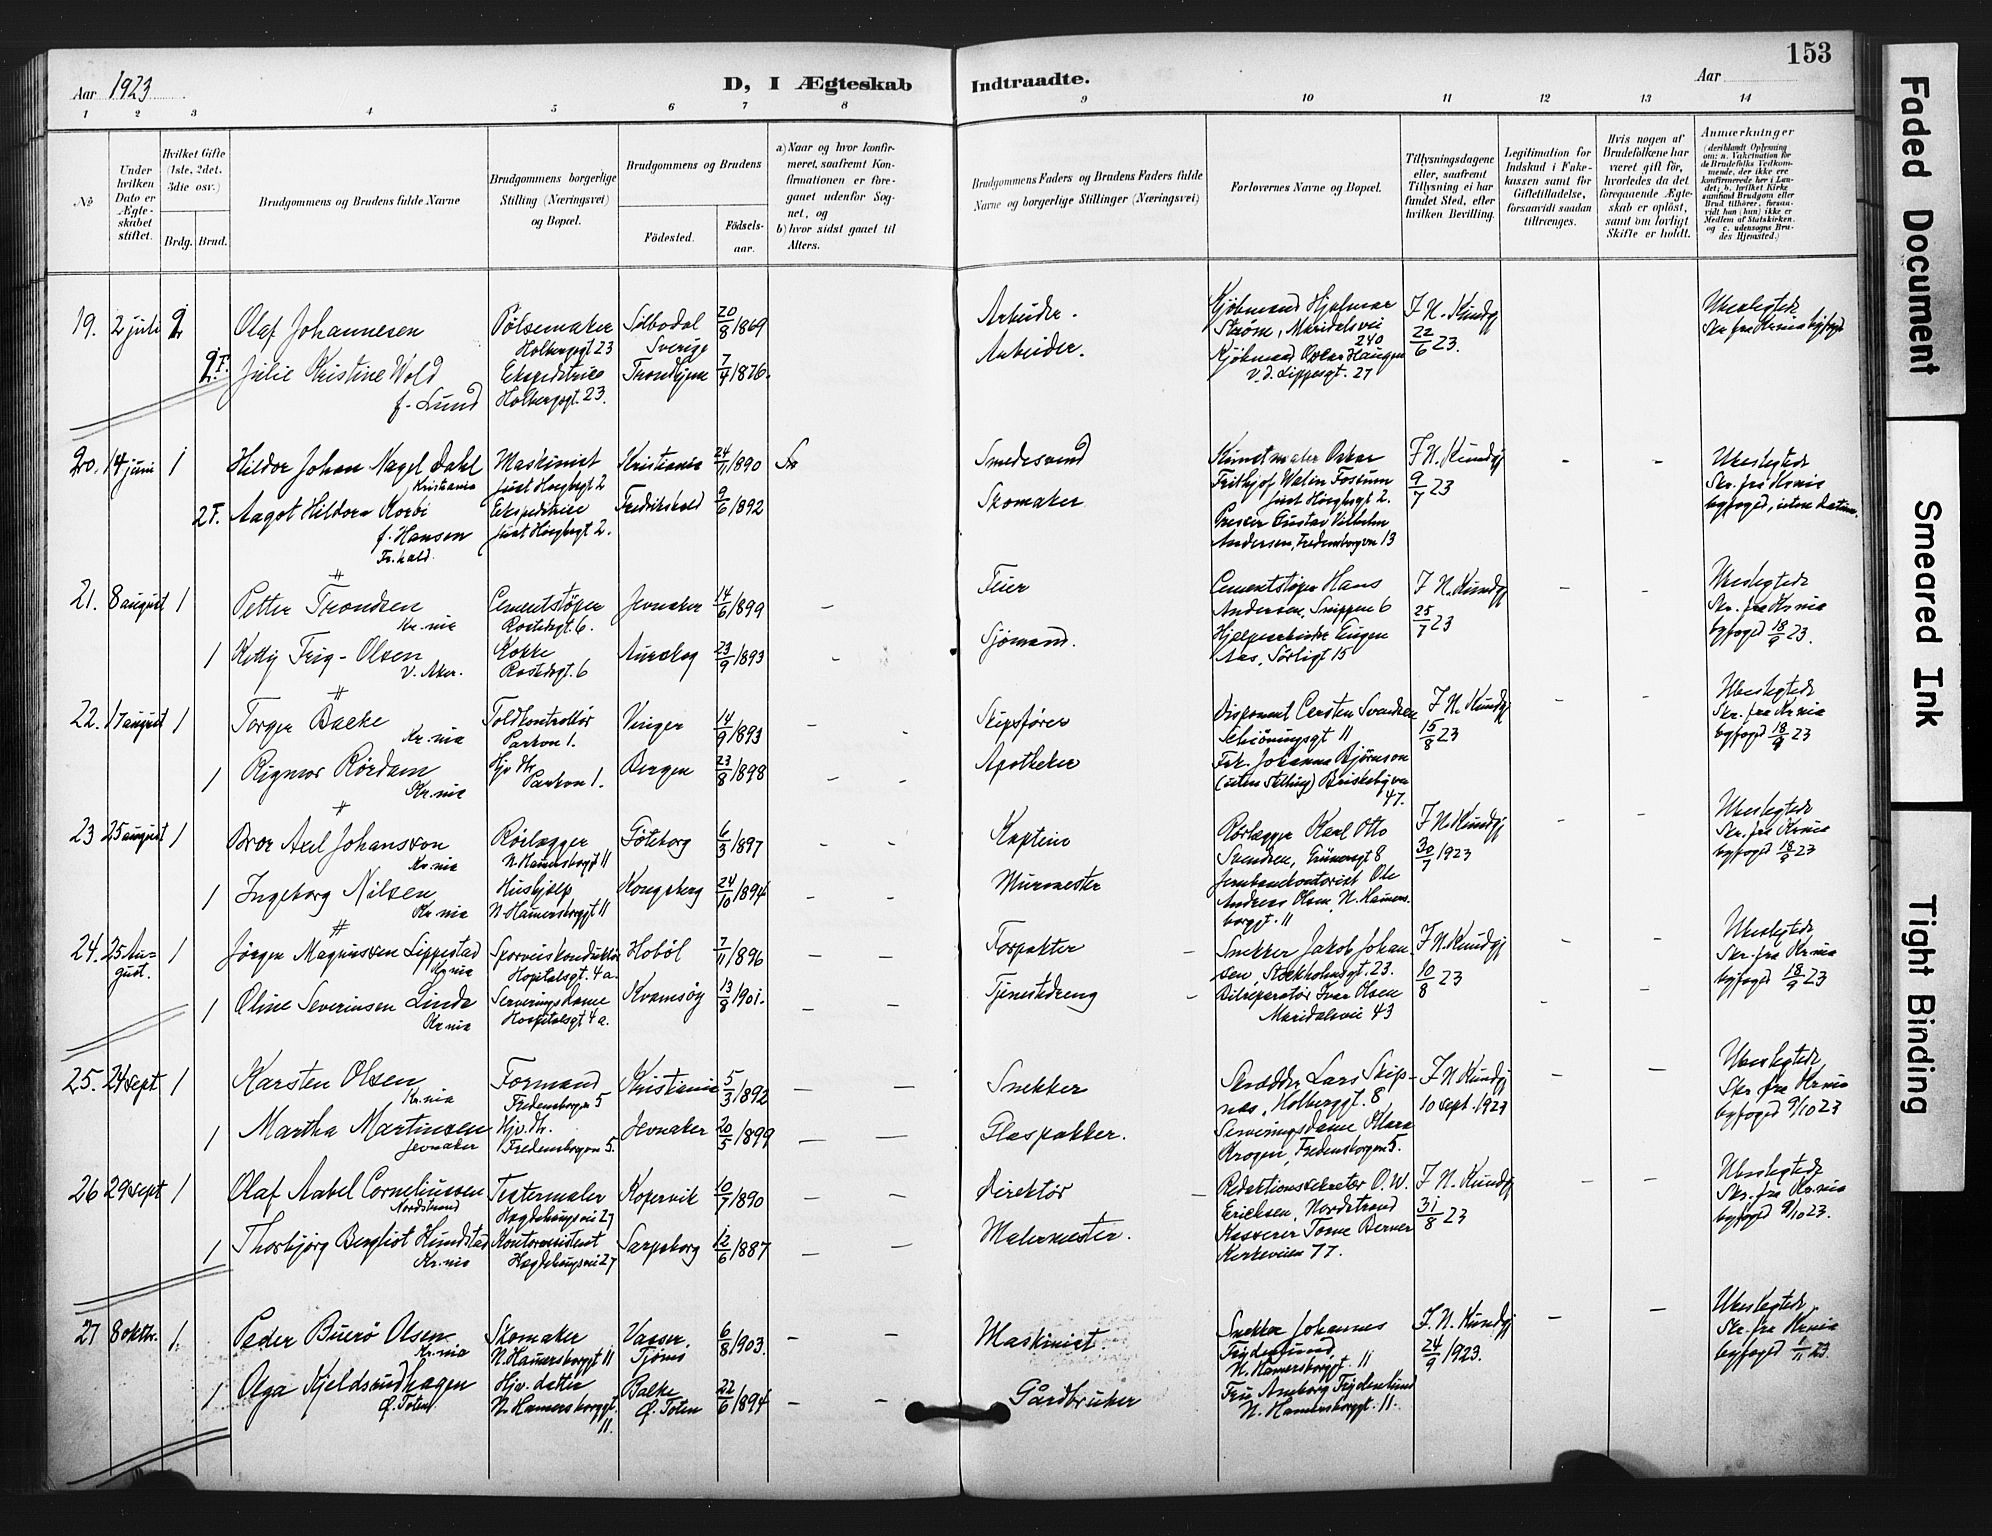 153
Aar 1923
D, I Ægteskab Indtraadte.
Aar
1 2 3 4 5 6 7 8 9 10 11 12 13 14
No
Under hvilken Dato er Ægteskabet stiftet.
Hvilket Gifte (1ste, 2det, 3die osv.)
Brdg. Brud.
Brudgommens og Brudens fulde Navne
Brudgommens borgerlige Stilling (Næringsvei) og Bopæl.
Brudgommens og Brudens
Fødested.
Fødselsaar.
a) Naar og hvor konfirmeret, saafremt Konfirmationen er foregaaet udenfor Sognet, og
b) hvor sidst gaaet til Alters.
Brudgommens Faders og Brudens Faders fulde Navne og borgerlige Stillinger (Næringsvei)
Forlovernes Navne og Bopæl.
Tillysningsdagene eller, saafremt Tillysning ei har fundet Sted, efter hvilken Bevilling.
Legitimation for Indskud i Enkekassen samt for Giftetilladelse, forsaavidt saadan tiltrænges.
Hvis nogen af Brudefolkene har været gift før, hvorledes da det foregaaende Ægteskab er opløst, samt om lovligt Skifte er holdt.
Anmærkninger (deriblandt Oplysning om: a. Vakcination for de Brudefolks Vedkommende, der ikke ere konfirmerede her i Landet; b. hvilket Kirkesamfund Brudgom eller Brud tilhører, forsaavidt han (hun) ikke er Medlem af Statskirken. og c. udensogns Brudes Hjemsted.)
19. 2 juli 2 Olaf Johannesen Pølsemaker Holbergsgt 23 Silbodal Sverige 20/8 1869 Arbeider. Kjøbmand Hjalmar Strøm, Maridalsvei 240 F. N. Kundgj 22/6 23. Ubeslegtede Skr fra Krnia byfoged
2 F. Julie Kristine Wold f. Lund Ekspeditrice Holbergsgt. 23. Trondhjem 7/4 1876. Arbeider. Kjøbmand Oskar Haugen v. d. Lippesgt. 27
20. 14 juni 1 Hildor Johan Nagel Dahl Kristiania Maskinist Just Høegbgt 2 Kristiania 24/11 1890 Smedesvend Kunstmaler Oskar Frithjof Walin Fossum Just Høegbgt 2. F. N. Kundgj 9/7 23 - - Ubeslegtede Skr. fra Krnia byfoged, uten datum.
2 F. Aagot Hildora Korbi f. Hansen Fr.hald. Ekspeditrice Just Høegbgt 2. Fredrikshald 9/6 1892 Skomaker Presser Gustav Vilhelm Andersen, Fredensborgvn 13
21. 8 august 1 Petter Trondsen Kr.nia Cementstøper Rostedsgt. 6. Jevnaker 14/6 1899 - Feier Cementstøper Hans Andersen, Snippen 6 F. N. Kundgj 25/7 23 - - Ubeslegtede Skr. fra Kr nia byfoged 18/9 23.
1 Kitty Frig-Olsen V. Aker. Kokke Rostedsgt. 6 Aurskog 23/9 1893 - Sjømand. Hjælpearbeider Eugen Aas, Sørligt 15
22. 17 august 1 Torger Baeke Kr.nia Toldkontrollør Parkvn 1. Vinger 14/9 1893 - - Skipsfører Disponent Carsten Svendsen Schøningsgt 11 F. N. Kundgj 15/8 23 - - Ubeslegtede Skr. fra Kr nia byfoged 18/9 23
1 Rigmor Rørdam Kr.nia Hjv. dtr. Parkvn 1. Bergen 23/8 1898 - - Apotheker Frk. Johanna Bjørnson (uten stilling) Briskebyvn 47.
23 25 august 1 Bror Axel Johansson Kr.nia Rørlægger N. Hamersborgt 11 Göteborg 6/3 1897 - - Kaptein Rørlægger Karl Otto Svendsen, Grünersgt 8 F. N. Kundgj 30/7 1923 - - Ubeslegtede Skr. fra Krnia byfoged 18/9 23
1 Ingeborg Nilsen Kr.nia Hushjelp N. Hamersborggt 11 Kongsberg 24/10 1894 - - Murmester Jernbanekontorist Ole Andreas Olsen, N. Hamersborggt. 11
24. 25 August. 1 Jørgen Magnussen Lippestad Kr.nia Sporveiskonduktør Hospitalsgt. 4 a. Hobøl 7/11 1896 - - Forpakter - Snekker Jakob Johansen, Stockholmsgt. 23. F. N. Kundgj 10/8 23 - - Ubeslegtede Skr. fra Kr nia byfoged 18/9 23
1 Oline Severinsen Linde Kr.nia Serveringsdame Hospitalsgt 4 a. Kvamsøy 13/8 1901. - - Tjenestedreng - Bilreparatør Ivar Olsen Maridalsvei 43 - -
25. 24 sept 1 Karsten Olsen Kr.nia Formand Fredensborgvn 5 Kristiania 5/3 1892 - - Snekker Skrædder Lars Skipnæs, Holberggt. 8 F. N. Kundgj 10 sept. 1923 - - Ubeslegtede Skr fra Kr nia byfoged 9/10 23
1 Martha Martinsen Jevnaker Hjv. dtr. Fredensborgvn 5. Jevnaker 20/5 1899 - - Glaspakker. Serveringsdame Klara Krogen, Fredensborgvn 5.
26 29 sept 1 Olaf Aabel Corneliussen Nordstrand Teatermaler Hægdehaugsvei 27 Kopervik 10/7 1890 - - Direktør - Redaktionssekretær O. W. Ericksen, Nordstrand F. N. Kundgj 31/8 23 - - Ubeslegtede Skr. fra Kr.nia byfoged 9/10 23.
1 Thorbjørg Bergliot Hundstad Kr.nia Kontorassistent Hægdehaugsvei 27 Sarpsborg 12/6 1887 - - Malermester. Kasserer Tome Berner Kirkeveien 77.
27 8 oktbr. 1. Peder Buerø Olsen Kr.nia Skomaker N. Hamersborggt 11 Vasser Tjømø 6/8 1903. - - Maskinist. Snekker Johannes Frydenlund N. Hamersborggt. 11 F. N. Kundgj 24/9 1923. - - Ubeslegtede Skr. fra Kr nia byfoged 1/11 23.
1 Olga Kjeldsrudhagen Ø. Toten Hjv. datter N. Hamersborggt. 11. Balke Ø. Toten 22/6 1894 - - Gårdbruker Fru Amborg Frydenlund N. Hamersborggt. 11.
Faded Document
Smeared Ink
Tight Binding